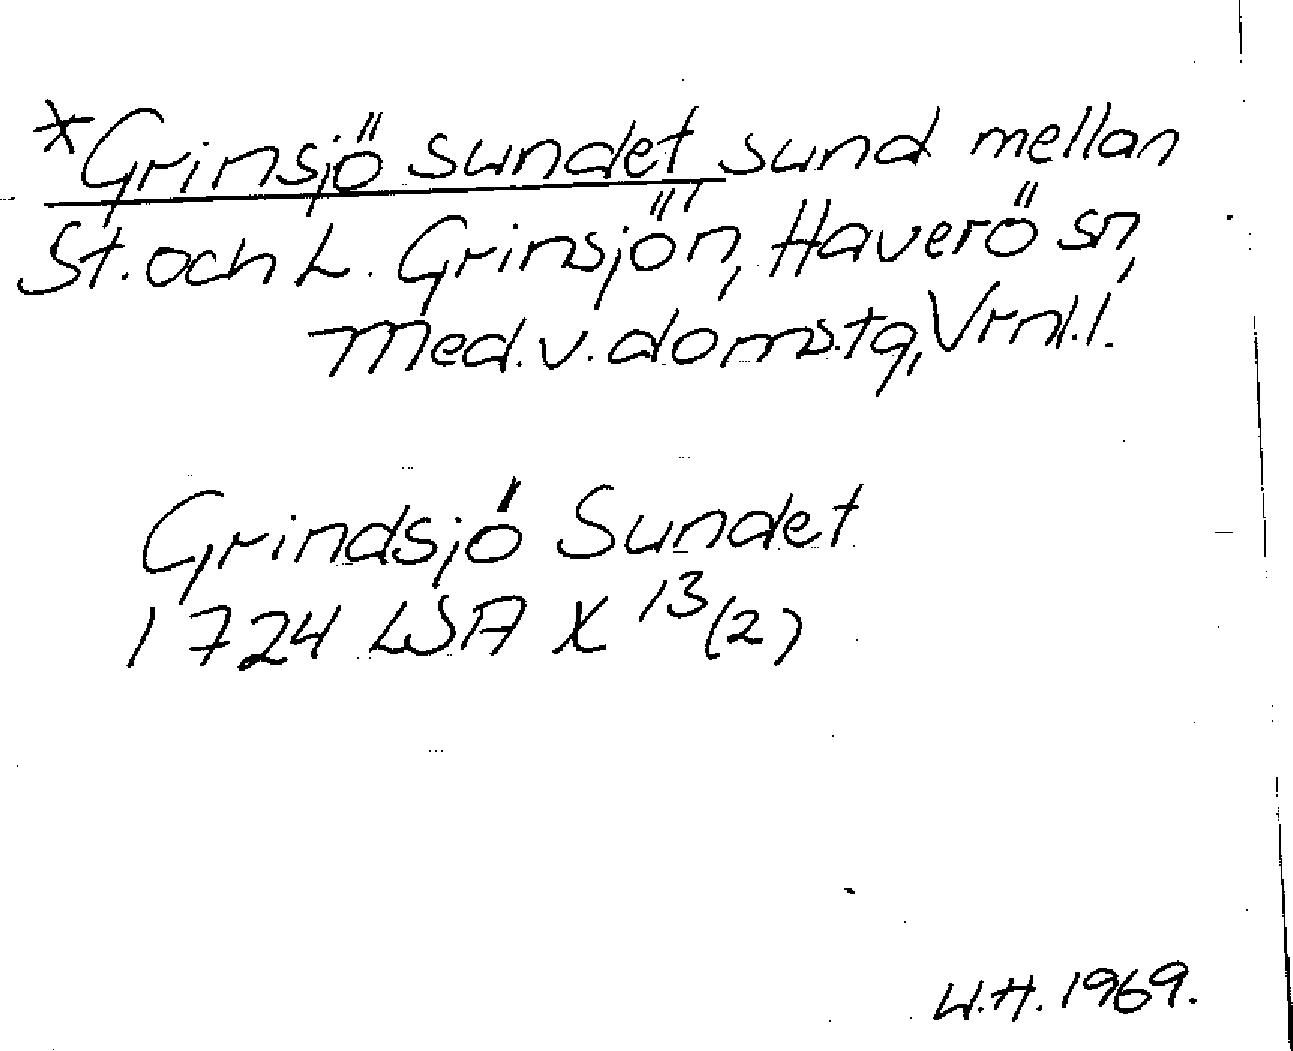 *Grinsjösundet sund mellan
St. och L. Grinsjön, Haverö sn,
Med. v. doms.tg, Vrml.l.
Grindsjö Sundet
1724 LSA X 13(2)
W.H. 1969.